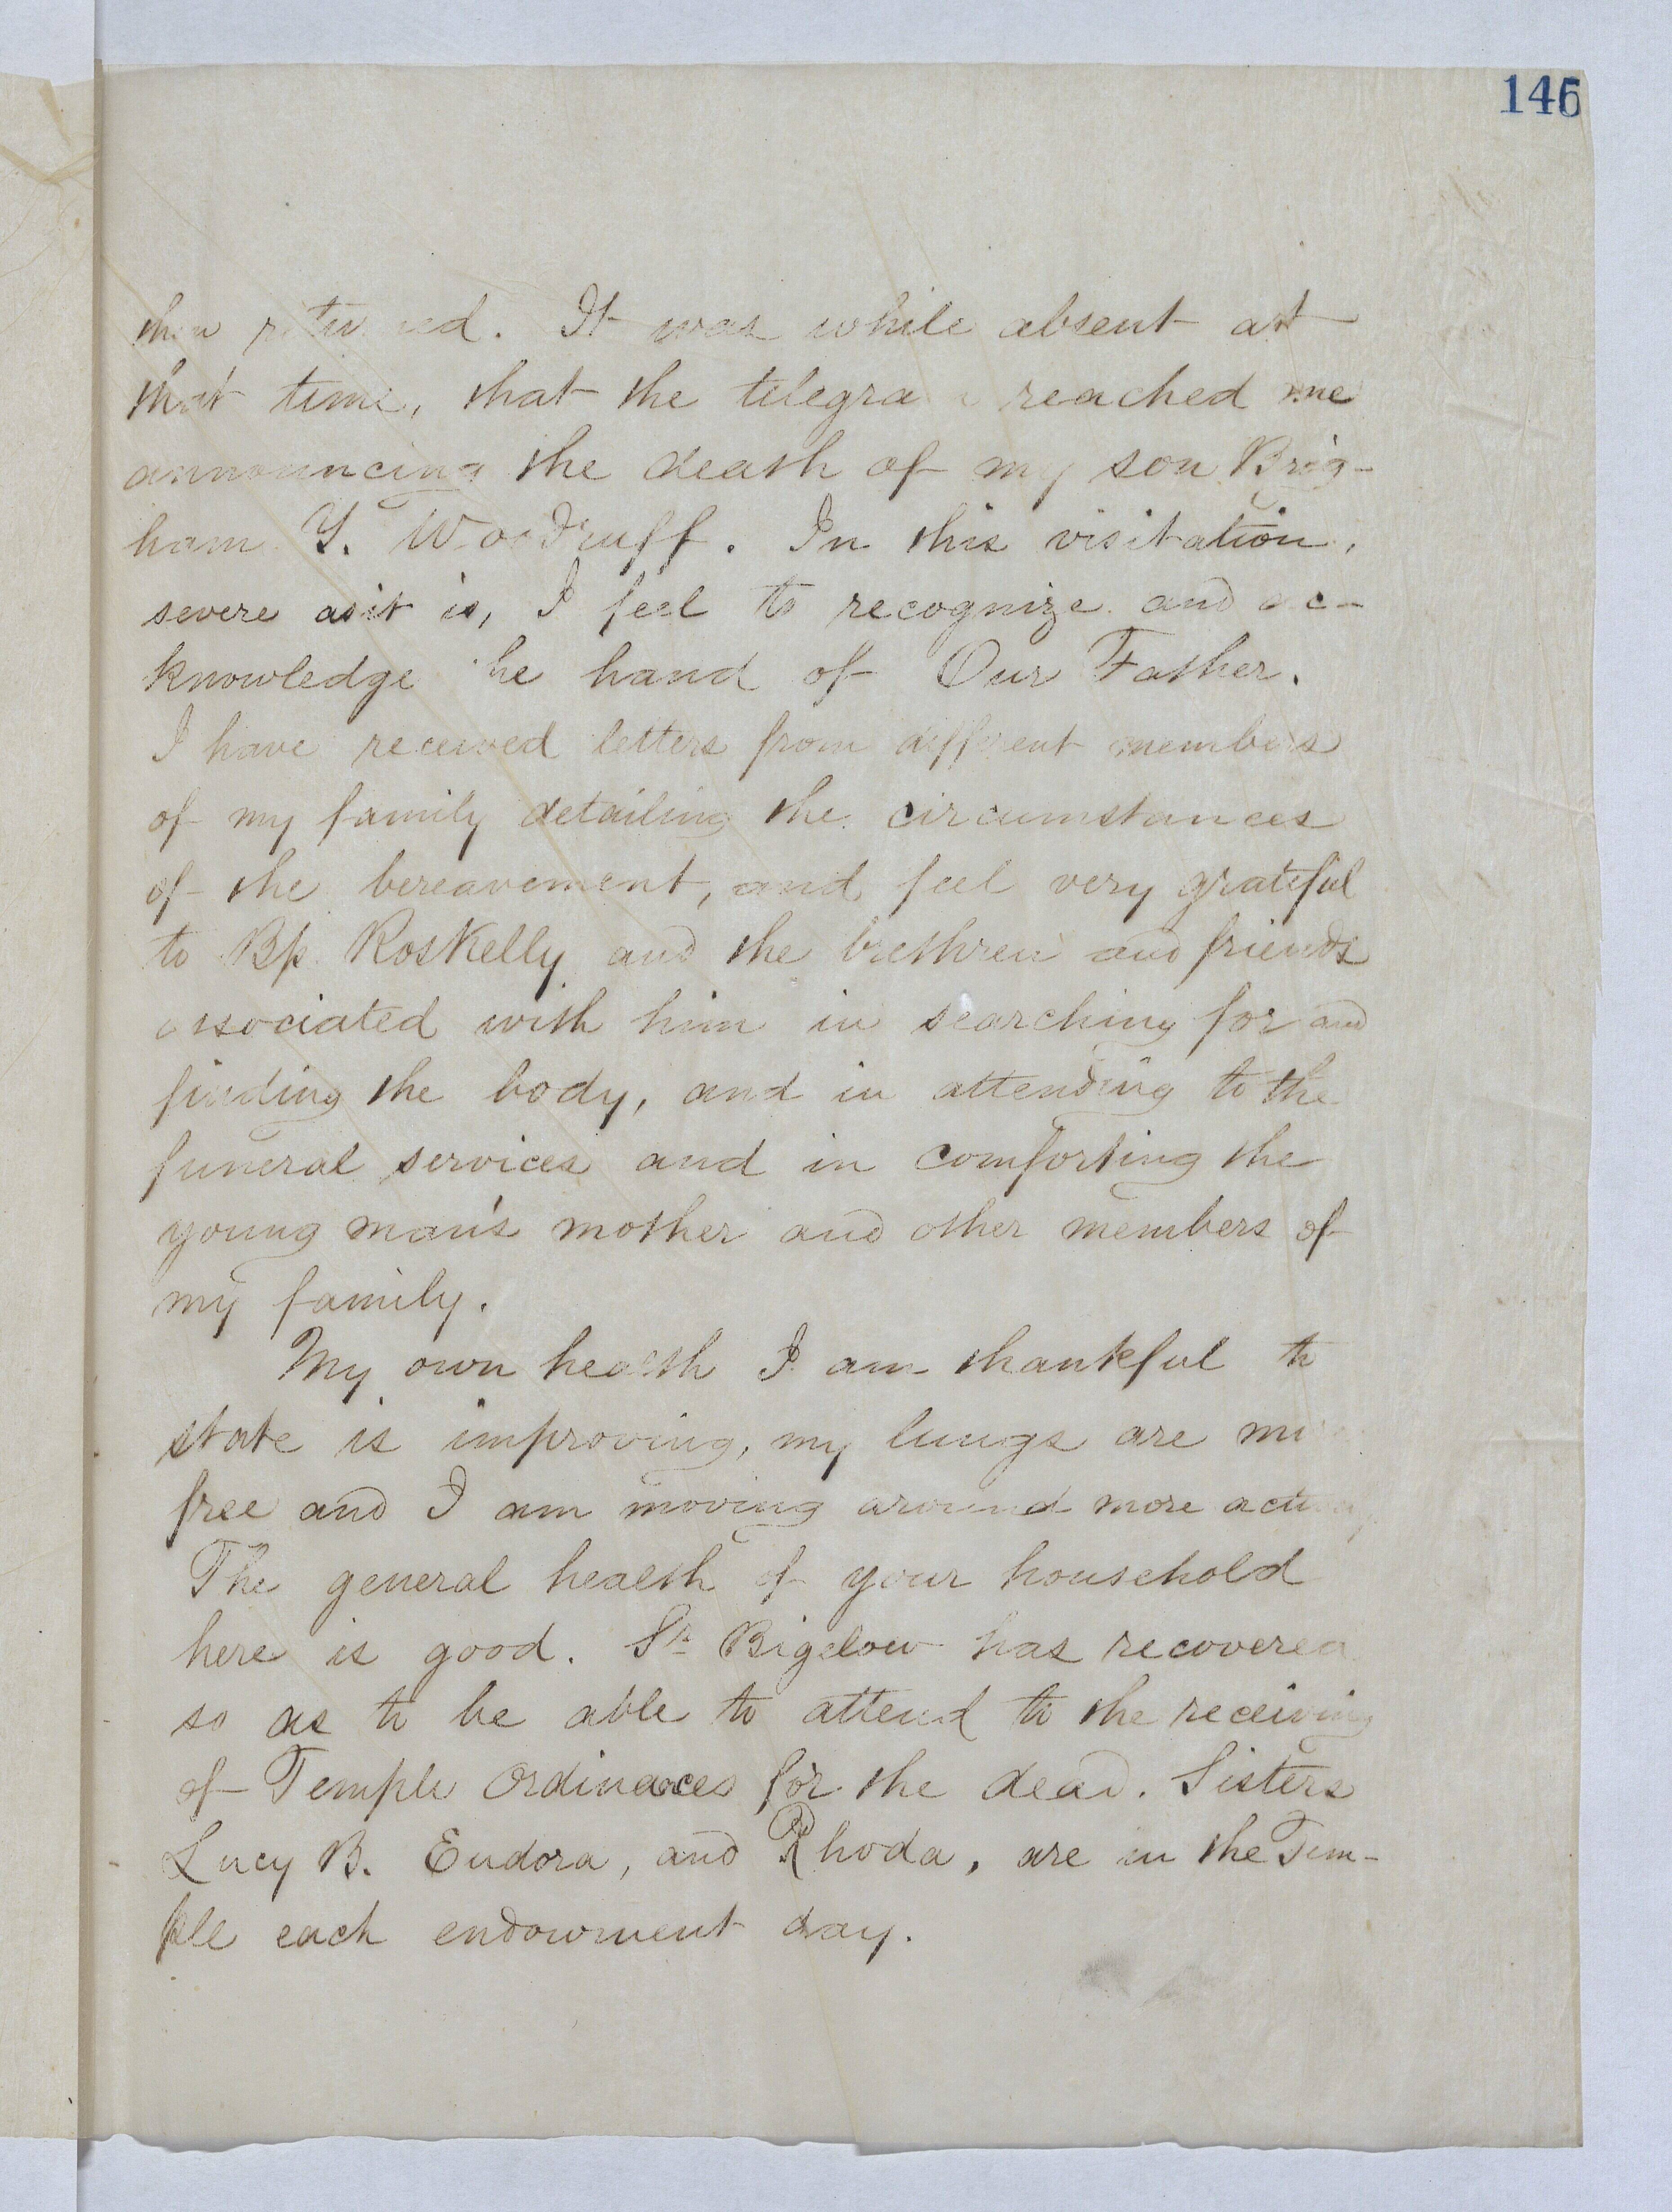 146
then returned. It was while absent at
that time, that the telegram reached me
announcing the death of my son Brig-
ham Y. Woodruff. In this visitation,
severe as it is, I feel to recognize and ac-
knowledge the hand of Our Father.
I have received letters from different members
of my family detailing the circumstances
of the bereavement, and feel very grateful
to Bp. Roskelly and the brethren and friends
associated with him in searching for and
finding the body, and in attending to the
funeral services and in comforting the
young man's mother and other members of
my family.
My own health I am thankful to
state is improving, my lungs are more
free and I am moving around more actively
The general health of your household
here is good. Sr Bigelow has recovered
so as to be able to attend to the receiving
of Temple Ordinances for the dead. Sisters
Lucy B. Eudora, and Rhoda, are in the Tem-
ple each endowment day.